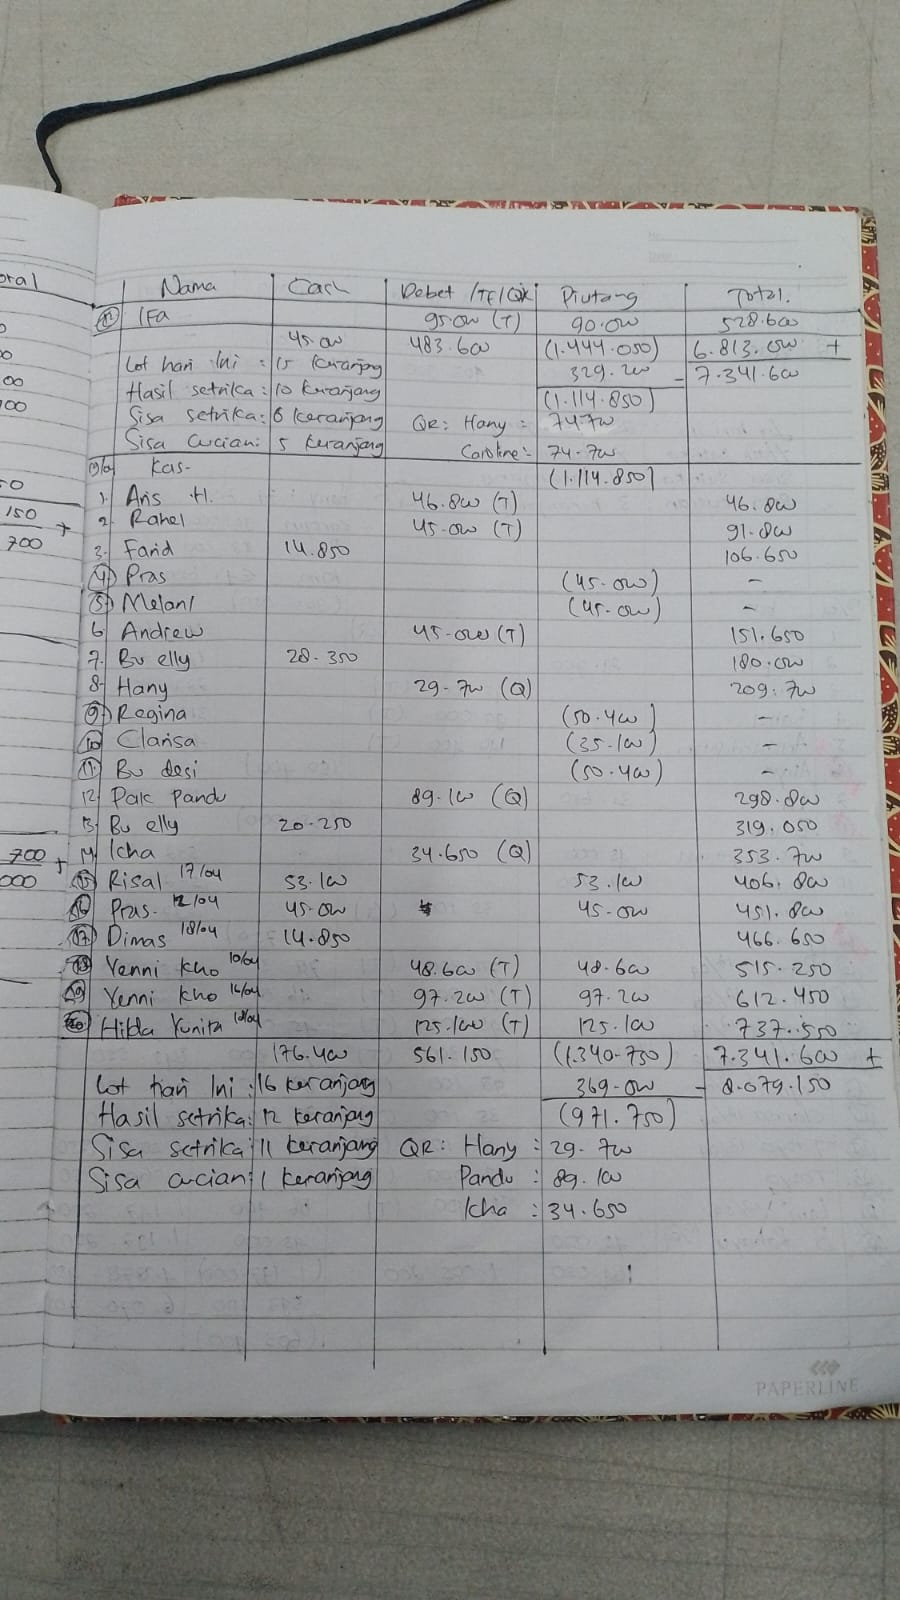 Nama Cash Debet /TF/QR Piutang Total.
12 IFa 95.000 (T) 90.000 528.600
45.000 483.600 (1.444.050) 6.813.000 +
Lot hari ini : 15 keranjang 329.200 - 7.341.600
Hasil setrika : 10 keranjang (1.114.850)
Sisa setrika : 6 keranjang QR : Hany : 74.700
Sisa Cucian : 5 keranjang Caroline : 74.700
Kas- (1.114.850)
1. Aris H. 46.800 (T) 46.800
2. Rahel 45.000 (T) 91.800
3. Farid 14.850 106.650
4) Pras (45.000) -
5) Melani (45.000) -
6. Andrew 45.000 (T) 151.650
7. Bu elly 28.350 180.000
8. Hany 29.700 (Q) 209.700
9) Regina (50.400) -
10 Clarisa (35.100) -
11 Bu desi (50.400) -
12. Pak Pandu 89.100 (Q) 298.800
13. Bu elly 20.250 319.050
14 Icha 34.650 (Q) 353.700
15 Risal 17/04 53.100 53.100 406.800
16 Pras. 12/04 45.000 45.000 451.800
17 Dimas 18/04 14.850 466.650
18 Yenni Kho 10/04 48.600 (T) 48.600 515.250
19 Yenni Kho 16/04 97.200 (T) 97.200 612.450
20 Hilda Yunita 125.100 (T) 125.100 737.550
176.400 561.150 (1.340.750) 7.341.600 +
Lot hari ini : 16 keranjang 369.000 - 8.079.150
Hasil setrika : 12 keranjang (971.750)
Sisa setrika : 11 keranjang QR : Hany : 29.700
Sisa cucian : 1 keranjang Pandu : 89.100
Icha : 34.650
PAPERLINE